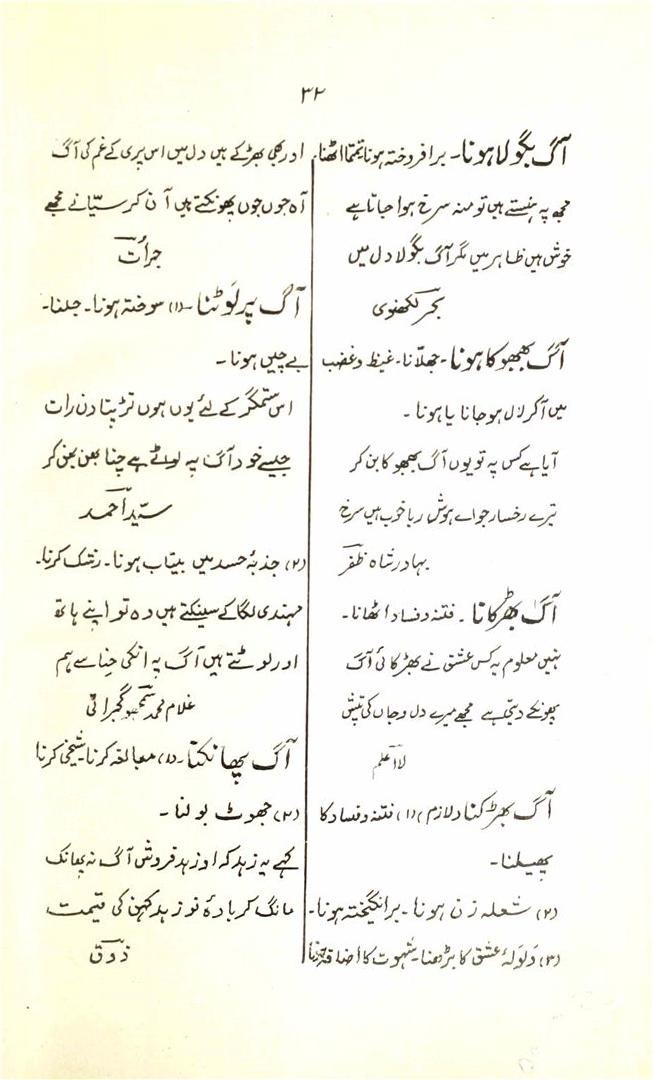 ۳۲
آگ بگولا ہونا۔ برافروختہ ہونا تمتما اٹھنا۔
مجھ پہ ہنستے ہیں تو منہ سرخ ہوا جاتا ہے
خوش ہیں ظاہر میں مگر آگ بگولا دل میں
بحر لکھنوی
آگ بھبھوکا ہونا۔ جھلّانا۔ غیظ و غضب
میں آکر لال ہوجانا یا ہونا۔
آیا ہے کس پہ تو یوں آگ بھبھوکا بن کر
تیرے رخسار جو اے ہوش ربا خوب ہیں سرخ
بہادر شاہ ظفر
آگ بھڑکانا۔ فتنہ و فساد اٹھانا۔
نہیں معلوم یہ کس عشق نے بھڑکائی آگ
پھونکے دیتی ہے مجھے میرے دل و جاں کی تپش
لا اعلم
آگ بھڑکنا (لازم) (۱) فتنہ و فساد کا
پھیلنا۔
(۲) شعلہ زن ہونا۔ برانگیختہ ہونا۔
(۳) ولولۂ عشق کا بڑھنا۔ شہوت کا اضافہ ہونا
اور بھی بھڑکے ہیں دل میں اس پری کے غم کی آگ
آہ جوں جوں پھونکتے ہیں آن کر سیانے مجھے
جرأت
آگ پر لَوٹنا۔ (۱) سوختہ ہونا۔ جلنا۔
بے چین ہونا۔
اس ستمگر کے لئے یوں ہوں تڑپتا دن رات
جیسے خود آگ پہ لوٹے ہے چنا بھن بھن کر
سیّد احمد
(۲) جذبۂ حسد میں بیتاب ہونا۔ رشک کرنا۔
مہندی لگا کے سینکتے ہیں وہ تو اپنے ہاتھ
اور لوٹتے ہیں آگ پہ انکی حِنا سے ہم
غلام محمد گجراتی
آگ پھانکنا۔ (۱) مبالغہ کرنا۔ شیخی کرنا
(۲) جھوٹ بولنا۔
کہے یہ زہد کہ او زہد فروش آگ نہ پھانک
مانگ کر بادۂ نو زہد کہن کی قیمت
ذوق